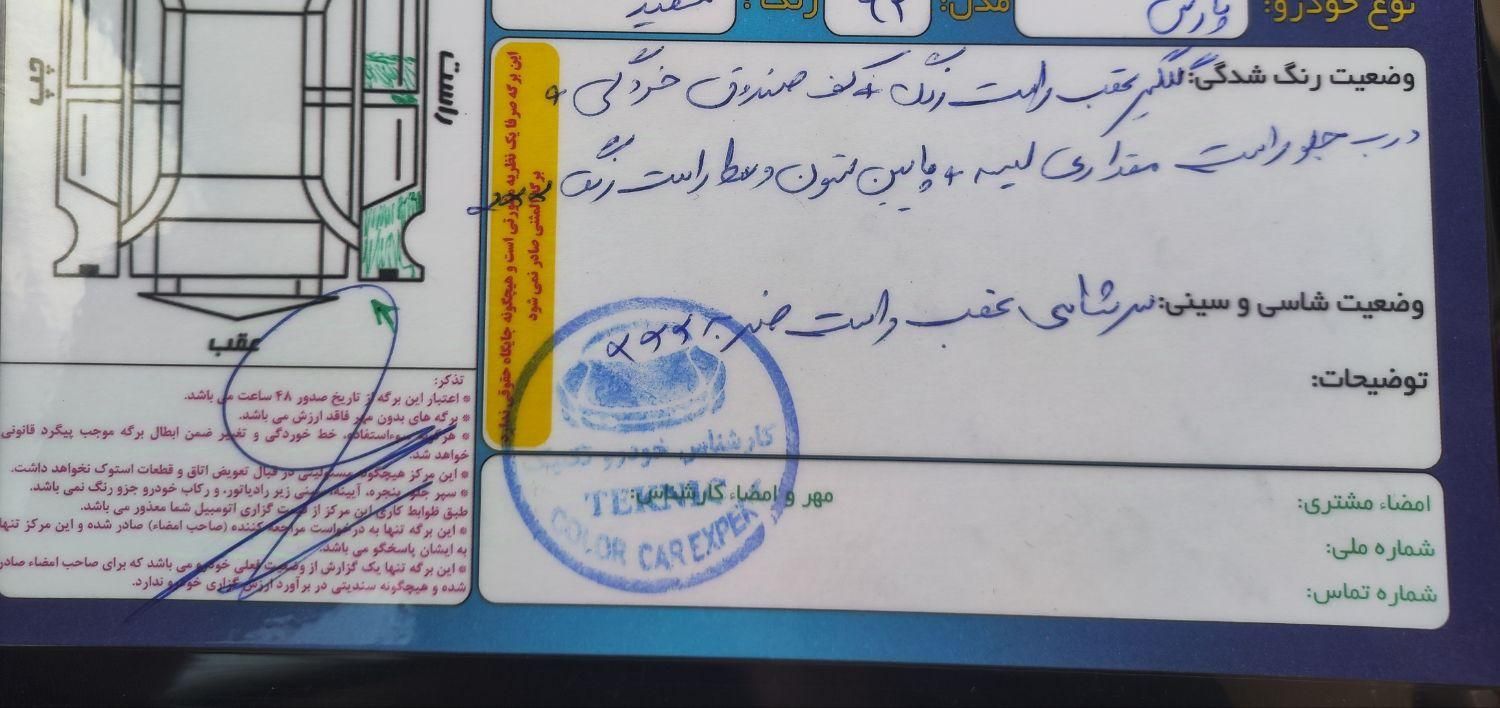 نوع خودرو: پارس مدل: ۹۲ رنگ: سفید
وضعیت رنگ شدگی: گلگیر عقب راست رنگ + کف صندوق خردگی +
درب جلو راست مقداری لیسه + پایین ستون وسط راست رنگ
وضعیت شاسی و سینی: سر شاسی عقب راست ضربه
توضیحات:
مهر و امضاء کارشناس:
امضاء مشتری:
شماره ملی:
شماره تماس:
کارشناس خودرو تکنیک
TEKNIC
COLOR CAR EXPERT
این برگه صرفا یک نظریه مشورتی است و هیچگونه جایگاه حقوقی ندارد
برگه المثنی صادر نمی شود
چپ
راست
عقب
تذکر:
* اعتبار این برگه از تاریخ صدور ۴۸ ساعت می باشد.
* برگه های بدون مهر فاقد ارزش می باشد.
* هرگونه سوءاستفاده، خط خوردگی و تغییر ضمن ابطال برگه موجب پیگرد قانونی
خواهد شد.
* این مرکز هیچگونه مسئولیتی در قبال تعویض اتاق و قطعات استوک نخواهد داشت.
* سپر جلو، پنجره، آیینه، سینی زیر رادیاتور، و رکاب خودرو جزو رنگ نمی باشد.
طبق ظوابط کاری این مرکز از قیمت گزاری اتومبیل شما معذور می باشد.
* این برگه تنها به درخواست مراجعه کننده (صاحب امضاء) صادر شده و این مرکز تنها
به ایشان پاسخگو می باشد.
* این برگه تنها یک گزارش از وضعیت فعلی خودرو می باشد که برای صاحب امضاء صادر
شده و هیچگونه سندیتی در برآورد ارزش گزاری خودرو ندارد.